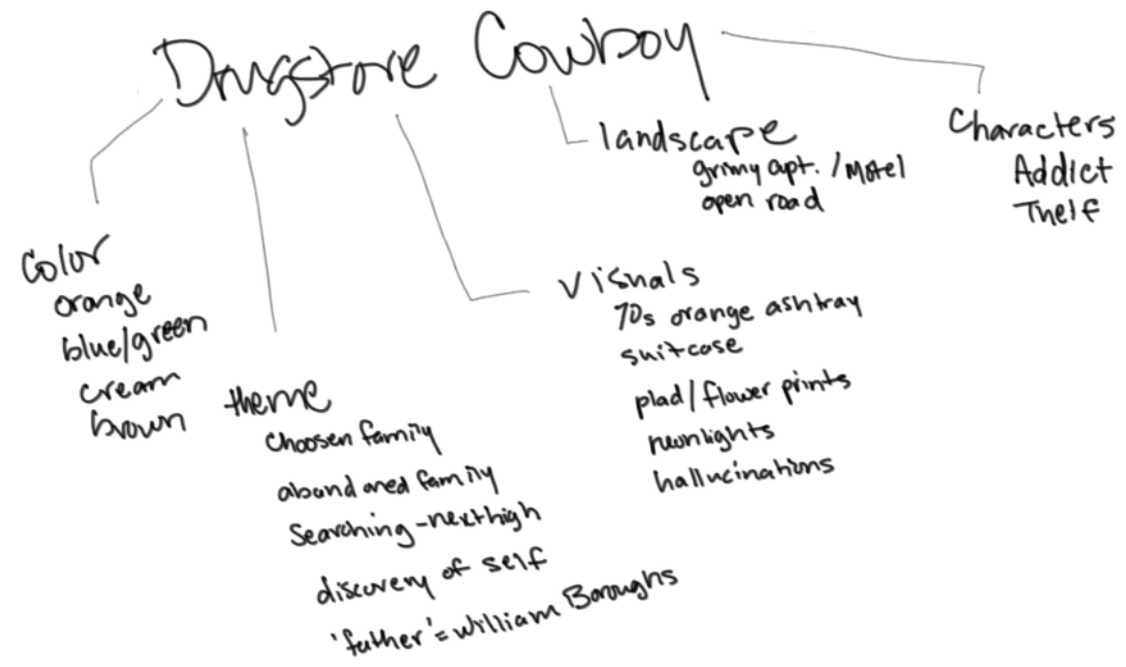 Drugstore Cowboy
Color
orange
blue/green
cream
brown
theme
choosen family
abandoned family
Searching-next high
discovery of self
'father'= William Boroughs
Visuals
70s orange ashtray
suitcase
plad/flower prints
neonlights
hallucinations
landscape
grimy apt. / Motel
open road
Characters
Addict
Theif